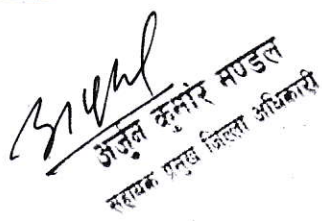 अर्जुन कुमार मण्डल
सहायक प्रमुख जिल्ला अधिकारी